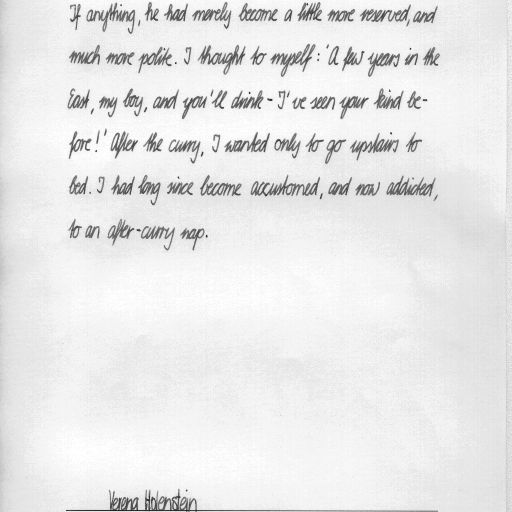 If anything, he had merely become a little more reserved, and
much more polite. I thought to myself: 'A few years in the
East, my boy, and you'll drink - I've seen your kind be-
fore!' After the curry, I wanted only to go upstairs to
bed. I had long since become accustomed, and now addicted,
to an after-curry nap.
Verena Holenstein